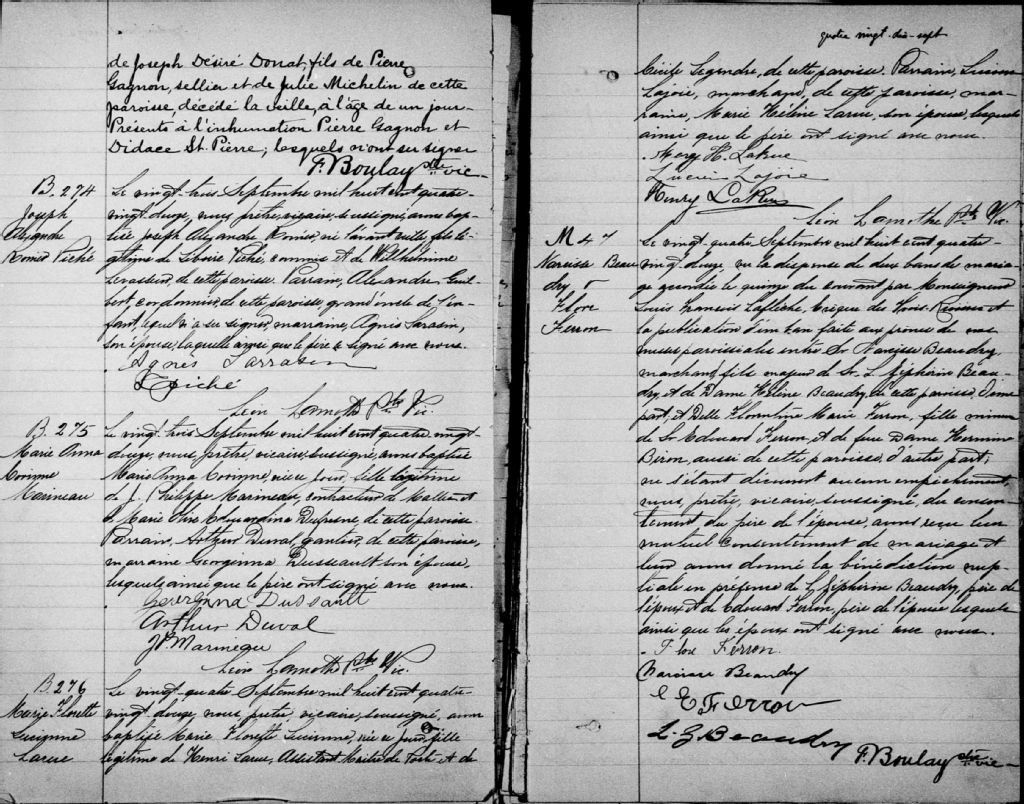 de Joseph Désiré Donat, fils de Pierre
Gagnon, sellier et de Julie Michelin de cette
paroisse, décédé la veille, à l'âge de un jour.
Présents à l'inhumation Pierre Gagnon et
Didace St. Pierre; lesquels n'ont su signer
F. Boulay ptre vic-
B. 274
Joseph
Alexandre
Roméo Piché
Le vingt-trois Septembre mil huit cent quatre
vingt-douze, nous, prêtre, vicaire, soussigné, avons bap-
tisé Joseph Alexandre Roméo, né l'avant-veille, fils lé-
gitime de Piché, commis et de Wilhelmine
Levasseur, de cette paroisse. Parrain, Alexandre
cordonnier, de cette paroisse, grand oncle de l'en-
fant, lequel n'a su signer, marraine, Agnès Sarasin,
son épouse, laquelle ainsi que le père a signé avec nous.
Agnes Sarrasin
Piché
Léon Lamothe Ptre Vic.
B. 275
Marie Anna
Corinne
Marineau
Le vingt-trois Septembre mil huit cent quatre vingt-
douze, nous, prêtre, vicaire, soussigné, avons baptisé
Marie Anna Corinne, née ce jour, fille légitime
de J. Philippe Marineau, contracteur de Malles et
de Marie Edwardina Dufresne, de cette paroisse.
Parrain, Arthur Duval, gantier, de cette paroisse,
marraine Georgianna Dusseault son épouse,
lesquels ainsi que le père ont signé avec nous.
Georgiana Dussault
Arthur Duval
J.P. Marineau
Léon Lamothe Ptre Vic.
B. 276
Marie Florette
Lucienne
Larue
Le vingt-quatre Septembre mil huit cent quatre-
vingt douze, nous, prêtre, vicaire, soussigné, avons
baptisé Marie Florette Lucienne, née ce jour, fille
légitime de Henri Larue, Assistant Maître de Poste et de
quatre vingt-dix-sept
Cécile Legendre, de cette paroisse. Parrain, Lucien
Lajoie, marchand, de cette paroisse, mar-
raine, Marie Hélène Larue, son épouse, lesquels
ainsi que le père ont signé avec nous.
Mary H. LaRue
Lucien Lajoie
Henry LaRue
Léon Lamothe Ptre Vic.
M 47
Narcisse Beau
dry &
Flore
Ferron
Le vingt-quatre Septembre mil huit cent quatre-
vingt-douze, vu la dispense de deux bans de maria-
ge accordée le quinze du courant par Monseigneur
Louis François Laflèche, Evêque des Trois-Rivières et
la publication d'un ban faite aux prônes de nos
messes paroissiales entre Sr Narcisse Beaudry
marchand, fils majeur de Sr. L. Zéphirin Beau-
dry, et de Dame Hélène Beaudry, de cette paroisse, d'une
part, et Delle Florentine Marie Ferron, fille mineure
de Sr Edouard Ferron, et de feue Dame Hermine
Biron, aussi de cette paroisse, d'autre part;
ne s'étant découvert aucun empêchement,
nous, prêtre, vicaire, soussigné, du consen-
tement du père de l'épouse, avons reçu leur
mutuel consentement de mariage et
leur avons donné la bénédiction nup-
tiale en présence de L. Zéphirin Beaudry, père de
l'époux, et de Edouard Ferron, père de l'épouse lesquels
ainsi que les époux ont signé avec nous.
Flore Ferron
Narcisse Beaudry
E Ferron
L. Z. Beaudry
F. Boulay ptre vic-